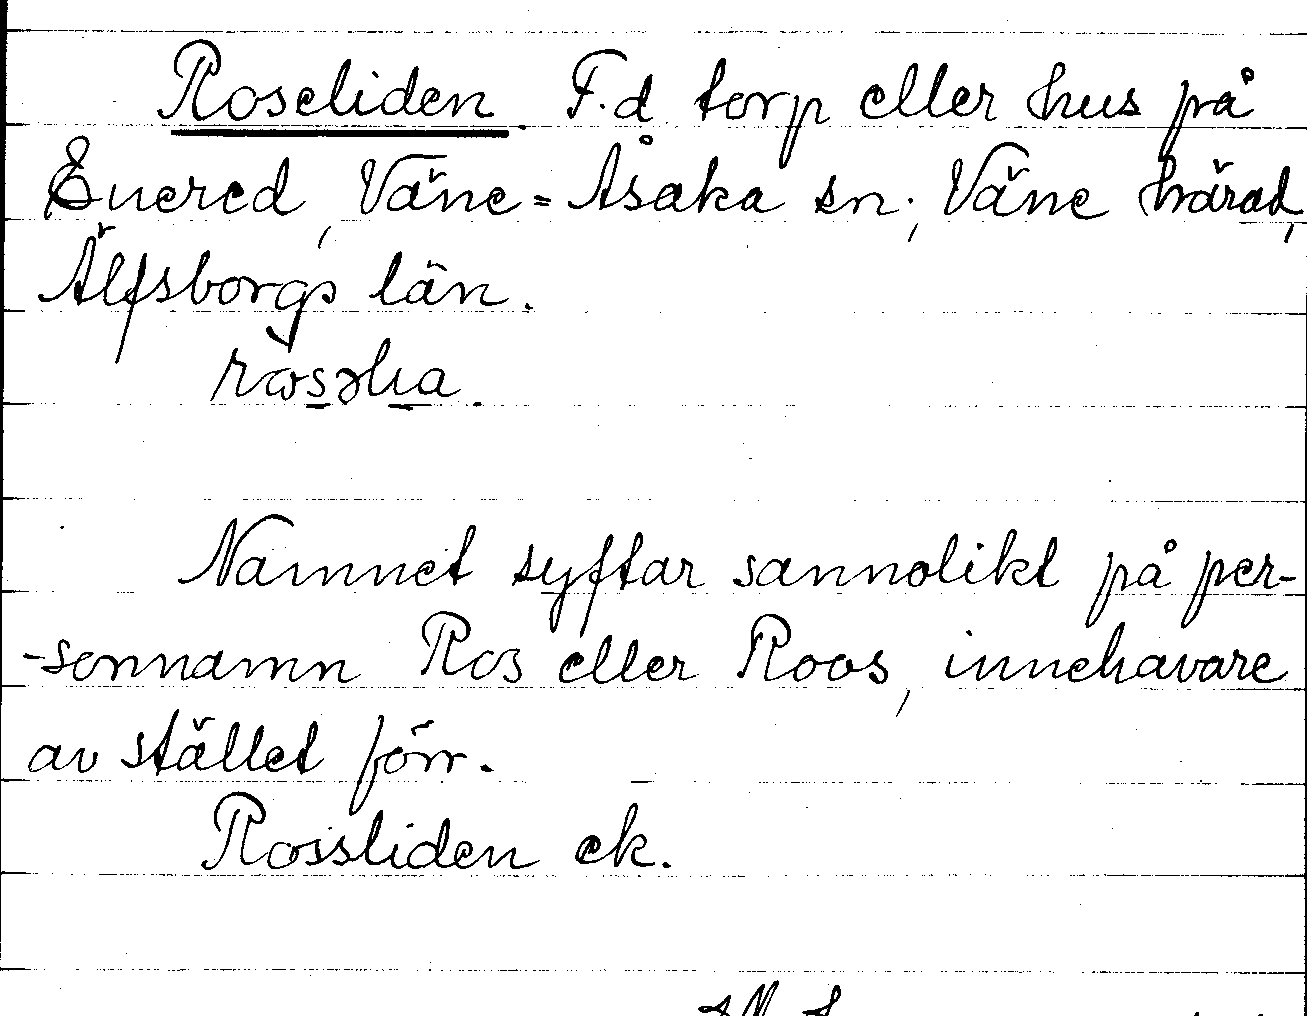 Roseliden. F.d torp eller hus på
Enered, Väne=Åsaka sn; Väne härad,
Älfsborgs län.
Namnet syftar sannolikt på per-
-sonnamn Ros eller Roos, innehavare
av stället förr.
Rossliden ek.